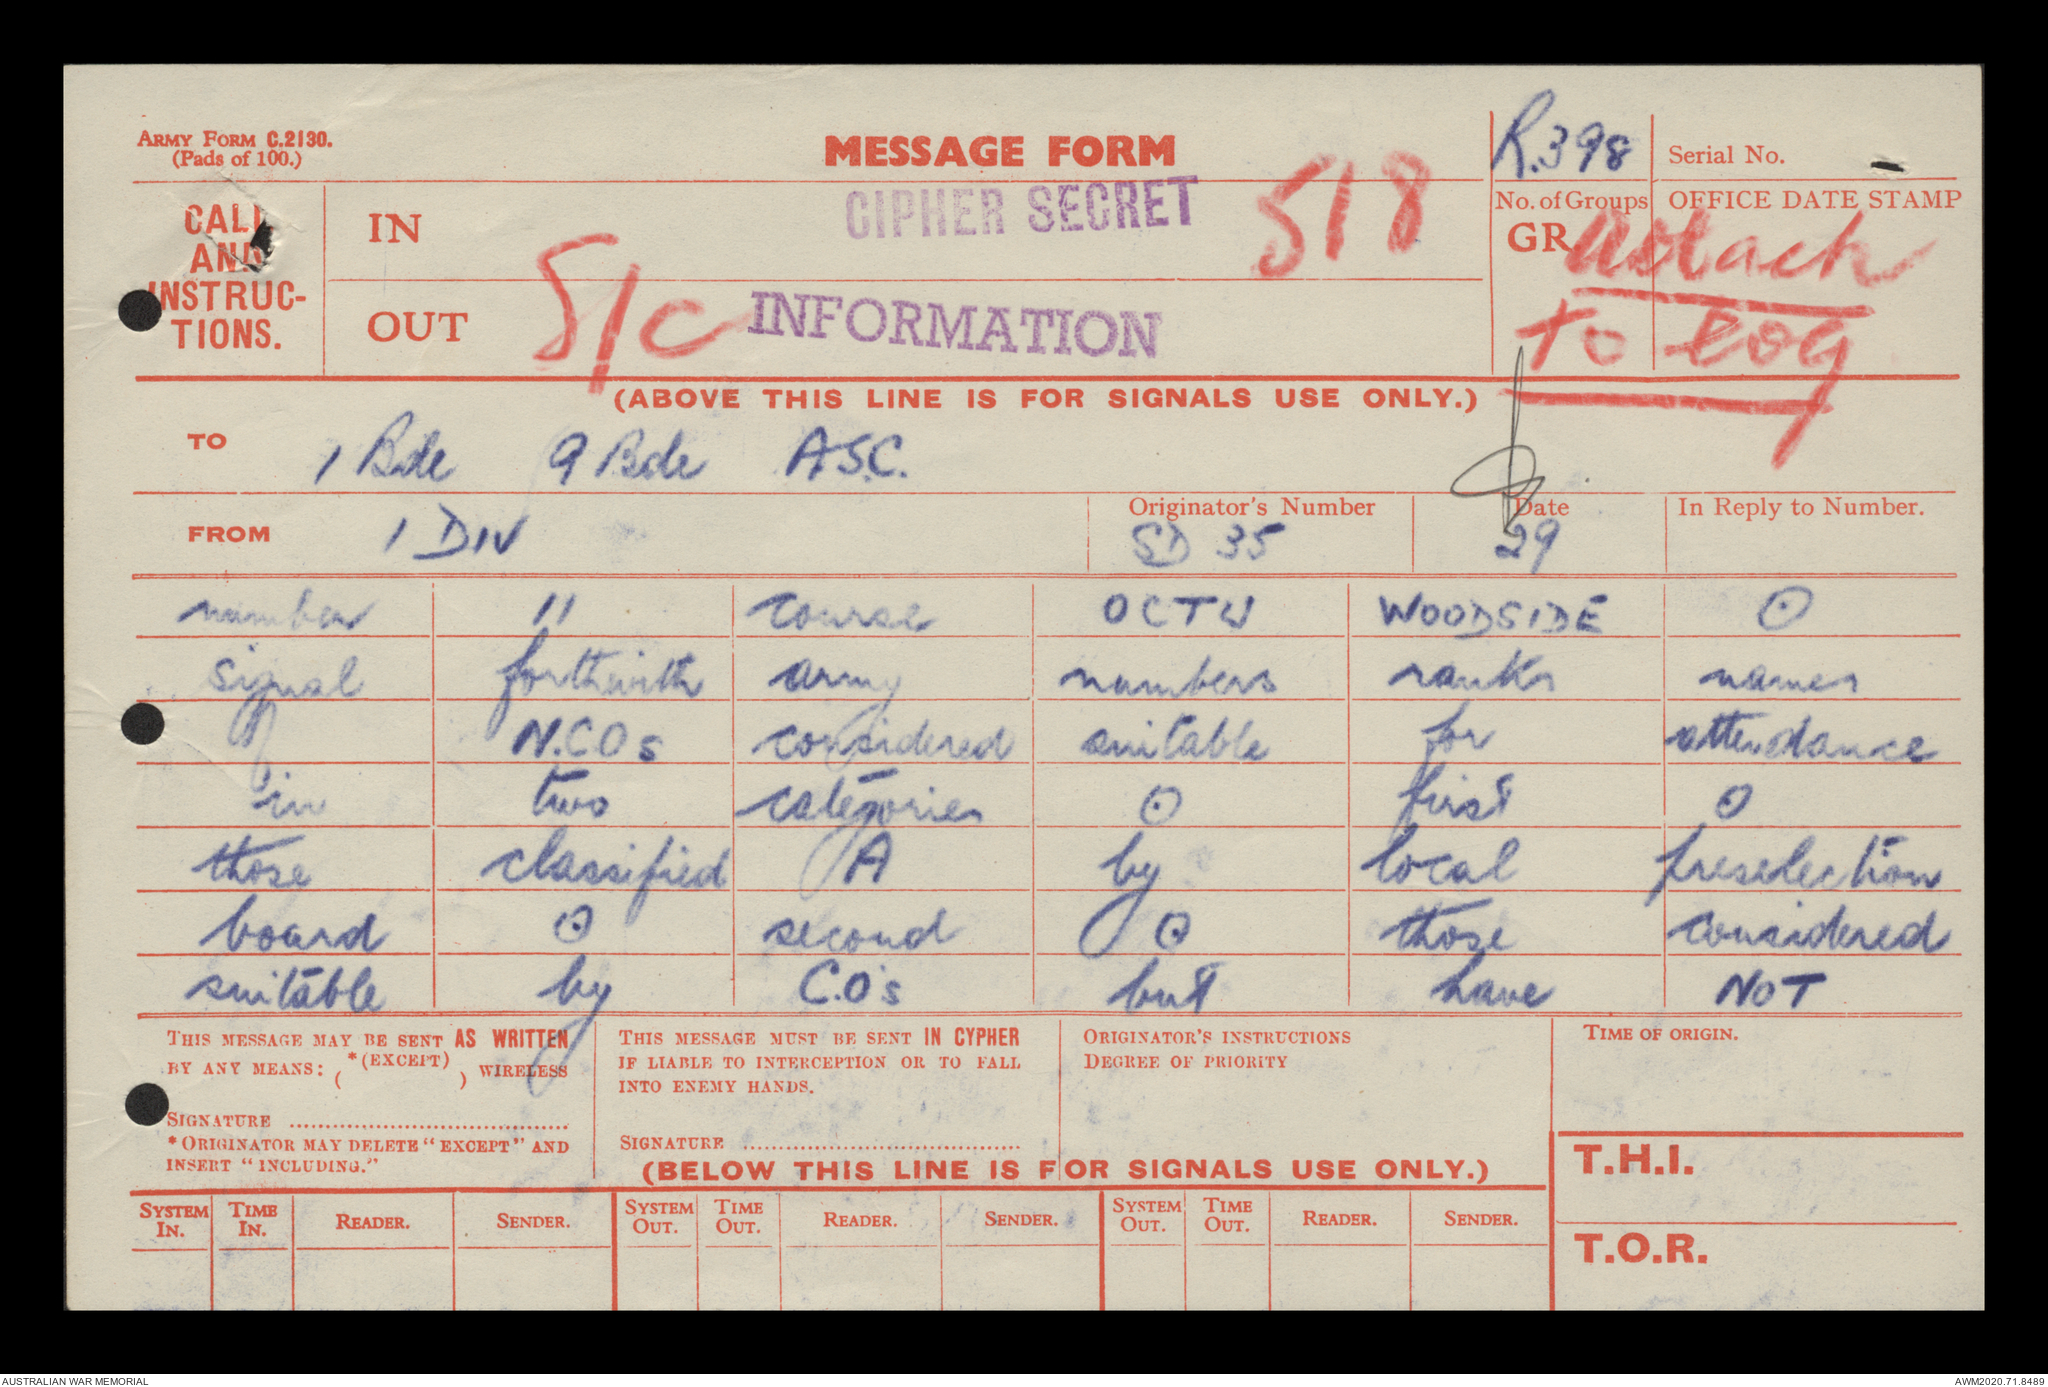 ARMY FORM C.2130.
(Pads of 100.)
MESSAGE FORM
R.398
Serial No.
CALL
AND
INSTRUC-
TIONS.
IN
CIPHER SECRET
518
No. of Groups
GR.
OFFICE DATE STAMP
OUT
S/C
INFORMATION
to
(ABOVE THIS LINE IS FOR SIGNALS USE ONLY.)
TO 1 Bde 9 Bde ASC.
FROM 1 DIV
Originator's Number
SD 35
Date
29
In Reply to Number.
number 11 course OCTU WOODSIDE ⊙
signal forthwith army numbers ranks names
of N.COs considered suitable for attendance
in two categories ⊙ first ⊙
those classified A by local preselection
board ⊙ second ⊙ those considered
suitable by C.O's but have NOT
THIS MESSAGE MAY BE SENT AS WRITTEN
BY ANY MEANS: *(EXCEPT) ( ) WIRELESS
SIGNATURE
*ORIGINATOR MAY DELETE "EXCEPT" AND
INSERT "INCLUDING."
THIS MESSAGE MUST BE SENT IN CYPHER
IF LIABLE TO INTERCEPTION OR TO FALL
INTO ENEMY HANDS.
SIGNATURE
ORIGINATOR'S INSTRUCTIONS
DEGREE OF PRIORITY
TIME OF ORIGIN.
(BELOW THIS LINE IS FOR SIGNALS USE ONLY.)
T.H.I.
SYSTEM IN. TIME IN. READER. SENDER. SYSTEM OUT. TIME OUT. READER. SENDER. SYSTEM OUT. TIME OUT. READER. SENDER.
T.O.R.
AUSTRALIAN WAR MEMORIAL
AWM2020.71.8489